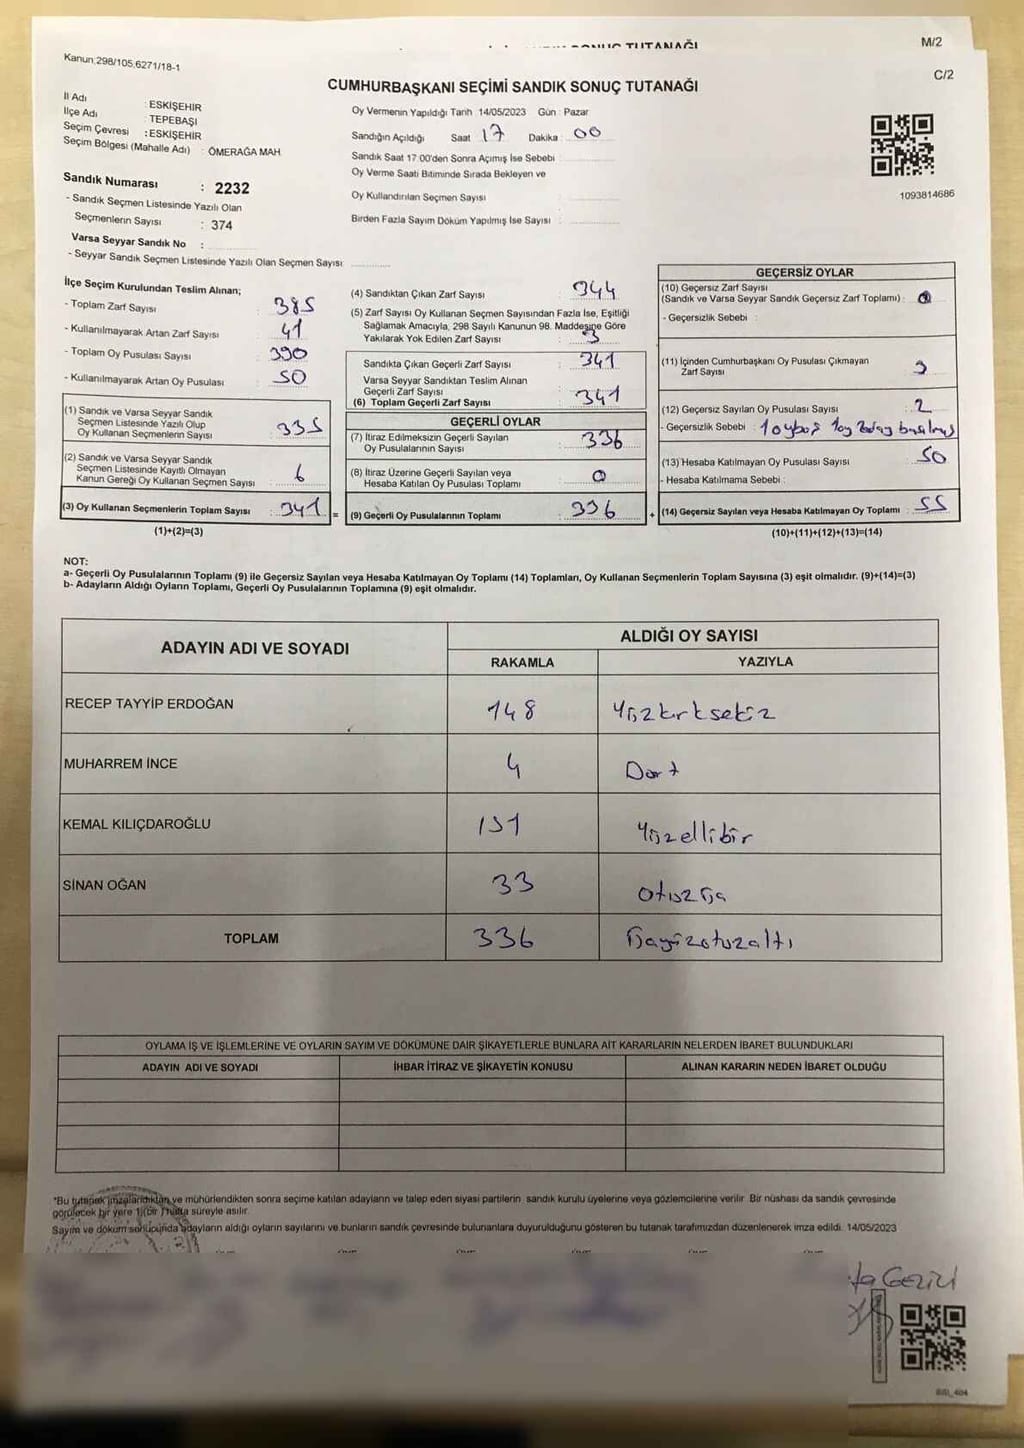 TUTANAĞI
M/2
Kanun;298/105,6271/18-1
C/2
CUMHURBAŞKANI SEÇİMİ SANDIK SONUÇ TUTANAĞI
İl Adı : ESKİŞEHİR
İlçe Adı : TEPEBAŞI
Seçim Çevresi : ESKİŞEHİR
Seçim Bölgesi (Mahalle Adı) : ÖMERAĞA MAH
Sandık Numarası : 2232
- Sandık Seçmen Listesinde Yazılı Olan
Seçmenlerin Sayısı : 374
Varsa Seyyar Sandık No :
- Seyyar Sandık Seçmen Listesinde Yazılı Olan Seçmen Sayısı:
Oy Vermenin Yapıldığı Tarih : 14/05/2023 Gün : Pazar
Sandığın Açıldığı Saat 17 Dakika : 00
Sandık Saat 17:00'den Sonra Açımış İse Sebebi :
Oy Verme Saati Bitiminde Sırada Bekleyen ve
Oy Kullandırılan Seçmen Sayısı :
Birden Fazla Sayım Döküm Yapılmış İse Sayısı :
1093814686
İlçe Seçim Kurulundan Teslim Alınan;
- Toplam Zarf Sayısı : 385
- Kullanılmayarak Artan Zarf Sayısı : 41
- Toplam Oy Pusulası Sayısı : 390
- Kullanılmayarak Artan Oy Pusulası : 50
(1) Sandık ve Varsa Seyyar Sandık
Seçmen Listesinde Yazılı Olup
Oy Kullanan Seçmenlerin Sayısı : 335
(2) Sandık ve Varsa Seyyar Sandık
Seçmen Listesinde Kayıtlı Olmayan
Kanun Gereği Oy Kullanan Seçmen Sayısı : 6
(3) Oy Kullanan Seçmenlerin Toplam Sayısı : 341 =
(1)+(2)=(3)
(4) Sandıktan Çıkan Zarf Sayısı : 344
(5) Zarf Sayısı Oy Kullanan Seçmen Sayısından Fazla İse, Eşitliği
Sağlamak Amacıyla, 298 Sayılı Kanunun 98. Maddesine Göre
Yakılarak Yok Edilen Zarf Sayısı : 3
Sandıkta Çıkan Geçerli Zarf Sayısı : 341
Varsa Seyyar Sandıktan Teslim Alınan
Geçerli Zarf Sayısı
(6) Toplam Geçerli Zarf Sayısı : 341
GEÇERLİ OYLAR
(7) İtiraz Edilmeksizin Geçerli Sayılan
Oy Pusulalarının Sayısı : 336
(8) İtiraz Üzerine Geçerli Sayılan veya
Hesaba Katılan Oy Pusulası Toplamı : 0
(9) Geçerli Oy Pusulalarının Toplamı : 336 +
GEÇERSİZ OYLAR
(10) Geçersiz Zarf Sayısı
(Sandık ve Varsa Seyyar Sandık Geçersiz Zarf Toplamı) :
- Geçersizlik Sebebi :
(11) İçinden Cumhurbaşkanı Oy Pusulası Çıkmayan
Zarf Sayısı :
(12) Geçersiz Sayılan Oy Pusulası Sayısı : 2
- Geçersizlik Sebebi : 1 oy boş 1 oy
(13) Hesaba Katılmayan Oy Pusulası Sayısı : 50
- Hesaba Katılmama Sebebi :
(14) Geçersiz Sayılan veya Hesaba Katılmayan Oy Toplamı : 55
(10)+(11)+(12)+(13)=(14)
NOT:
a- Geçerli Oy Pusulalarının Toplamı (9) ile Geçersiz Sayılan veya Hesaba Katılmayan Oy Toplamı (14) Toplamları, Oy Kullanan Seçmenlerin Toplam Sayısına (3) eşit olmalıdır. (9)+(14)=(3)
b- Adayların Aldığı Oyların Toplamı, Geçerli Oy Pusulalarının Toplamına (9) eşit olmalıdır.
ADAYIN ADI VE SOYADI ALDIĞI OY SAYISI
RAKAMLA YAZIYLA
RECEP TAYYİP ERDOĞAN 148 Yüzkırksekiz
MUHARREM İNCE 4 Dört
KEMAL KILIÇDAROĞLU 151 Yüzellibir
SİNAN OĞAN 33 otuzüç
TOPLAM 336 üçyüzotuzaltı
OYLAMA İŞ VE İŞLEMLERİNE VE OYLARIN SAYIM VE DÖKÜMÜNE DAİR ŞİKAYETLERLE BUNLARA AİT KARARLARIN NELERDEN İBARET BULUNDUKLARI
ADAYIN ADI VE SOYADI İHBAR İTİRAZ VE ŞİKAYETİN KONUSU ALINAN KARARIN NEDEN İBARET OLDUĞU
*Bu tutanak imzalandıktan ve mühürlendikten sonra seçime katılan adayların ve talep eden siyasi partilerin sandık kurulu üyelerine veya gözlemcilerine verilir. Bir nüshası da sandık çevresinde
görülecek bir yere 1(bir) hafta süreyle asılır.
Sayım ve döküm sonucunda adayların aldığı oyların sayılarını ve bunların sandık çevresinde bulunanlara duyurulduğunu gösteren bu tutanak tarafımızdan düzenlenerek imza edildi. 14/05/2023